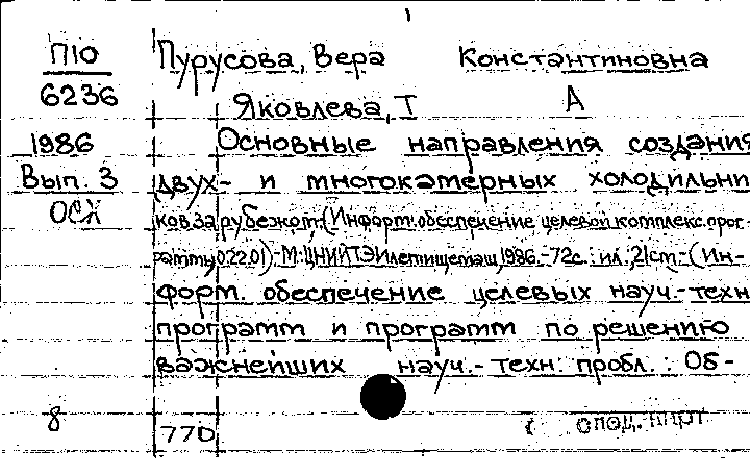 1
П10 Пурусова, Вера Константиновна
6236 Яковлева, Т А
1986 Основные направления создания
Вып. 3 двух- и многокамерных холодильни
ОСЖ ков за рубежом: (Информ. обеспечение целевой комплекс. прог-
раммы 0.22.01).-М.: ЦНИИТЭИлегпищемаш, 1986.-72с.: ил., 21см.-(Ин-
форм. обеспечение целевых науч.-техн
программ и программ по решению
важнейших науч.-техн. пробл. : Об-
8
770